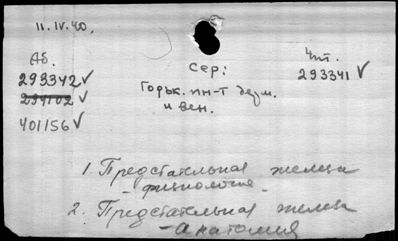 11.IV.40.
Аб.
293342 ✓
294102 ✓
401156 ✓
Сер:
Горьк. ин-т дерм.
и вен.
Чит.
293341 ✓
1. Предстательная железа
- физиология.
2. Предстательная железа
- Анатомия